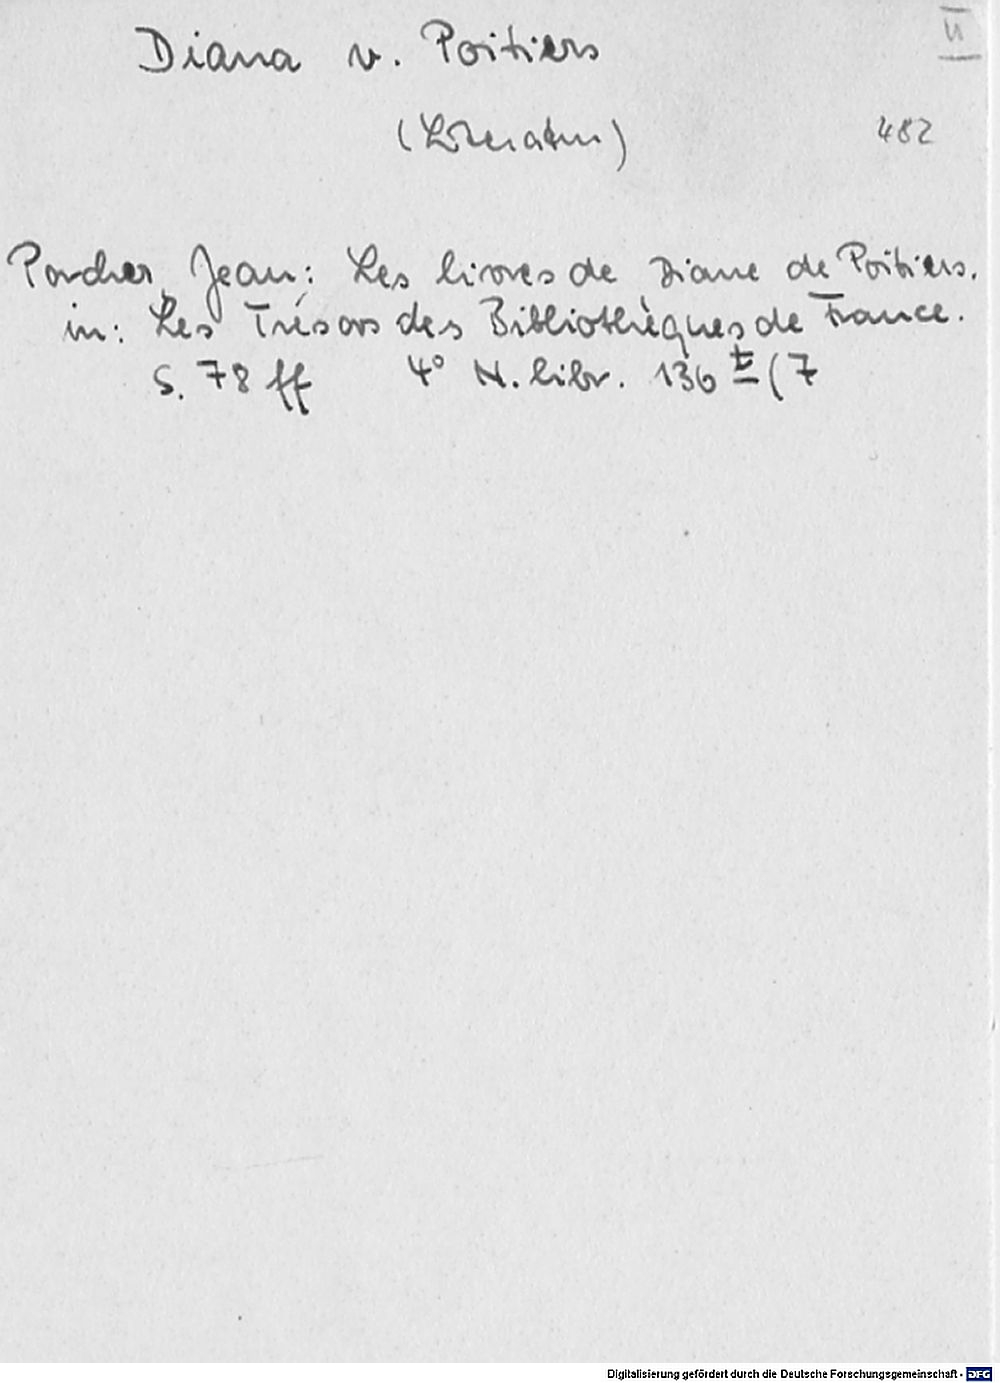 II
Diana v. Poitiers
(Literatur) 482
Porcher, Jean: Les livres de Diane de Poitiers.
in: Les Trésors des Bibliothèques de France.
S. 78 ff 4° N. libr. 136 t (7
Digitalisierung gefördert durch die Deutsche Forschungsgemeinschaft - DFG